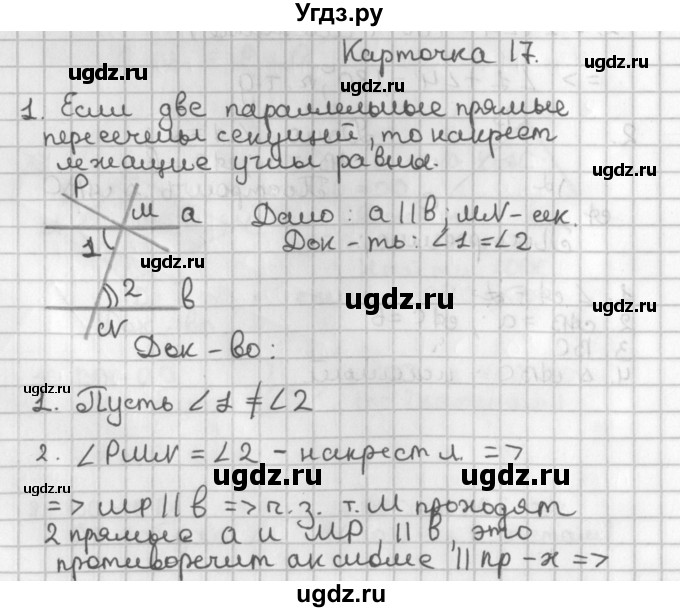 Угдз.ру
Карточка 17.
ugdz.ru
ugdz.ru
1. Если две параллельные прямые
пересечены секущей, то накрест
ugdz.ru
лежащие углы равны.
ugdz.ru
P
M a
Дано: a || в; MN - сек.
1
Док - ть: ∠1 = ∠2
ugdz.ru
ugdz.ru
2 в
ugdz.ru
N
Док - во:
ugdz.ru
ugdz.ru
1. Пусть ∠1 ≠ ∠2
2. ∠PMN = ∠2 - накрест л. =>
ugdz.ru
ugdz.ru
ugdz.ru
=> MP || в => ч.з. т. М проходят
2 прямые a и MP, || в, это
противоречит аксиоме || пр - х =>
ugdz.ru